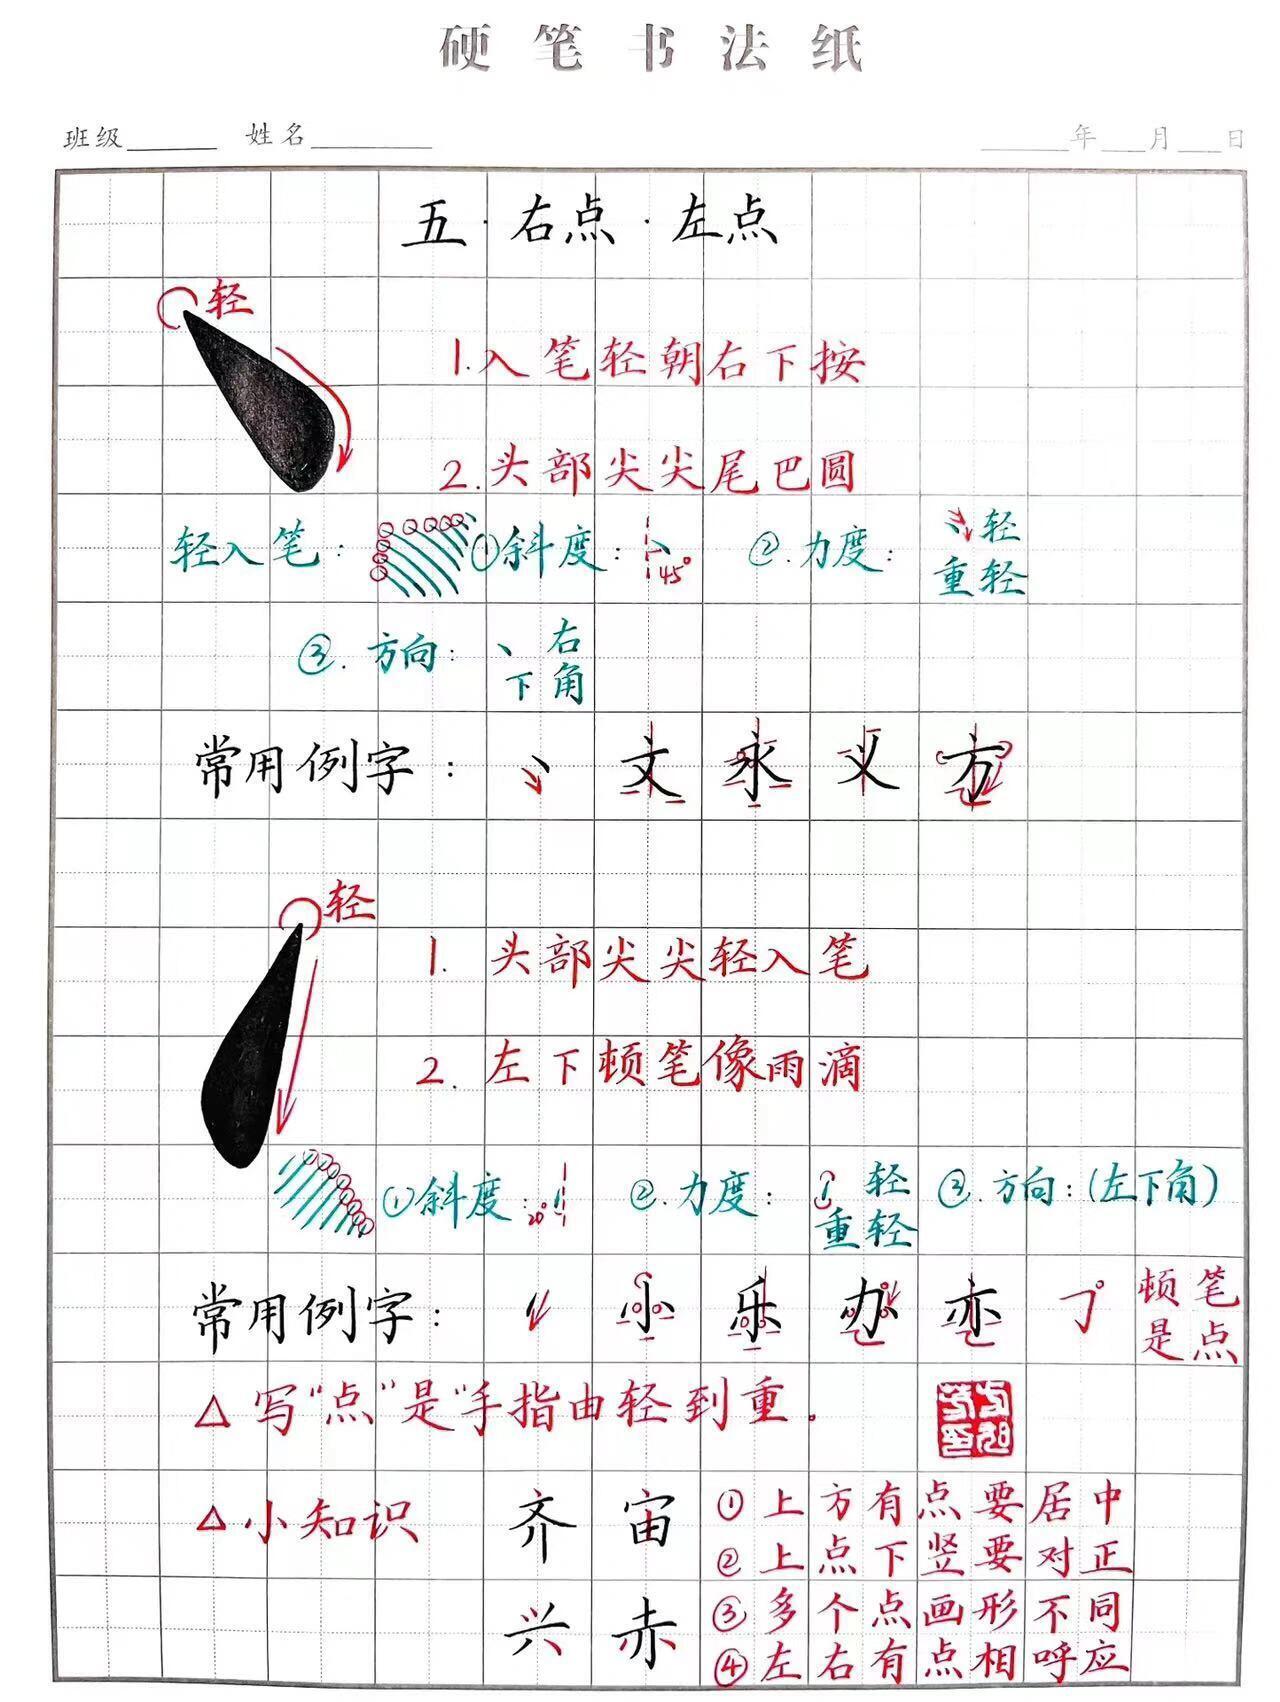 硬笔书法纸
班级 姓名 年 月 日
五·右点·左点
轻
1.入笔轻朝右下按
2.头部尖尖尾巴圆
轻入笔: ①斜度: 45° ②.力度: 轻
重轻
③.方向: 丶 右
下角
常用例字: 丶 文 永 义 方
轻
1. 头部尖尖轻入笔
2. 左下顿笔像雨滴
①斜度: 20° ②.力度: 轻 ③.方向:(左下角)
重轻
常用例字: 小 乐 办 亦 顿笔
是点
△写“点”是“手指由轻到重。
△小知识 齐 宙 ①上方有点要居中
②上点下竖要对正
兴 赤 ③多个点画形不同
④左右有点相呼应